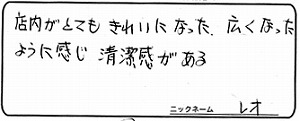 店内がとても きれいになった. 広くなった
ように感じ 清潔感がある
ニックネーム レオ